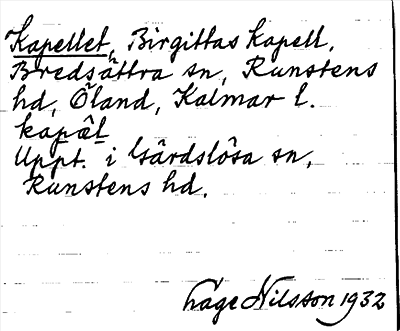 Kapellet, Birgittas kapell,
Bredsättra sn, Runstens
hd, Öland, Kalmar l.
kapä̂l
Uppt. i Gärdslösa sn,
Runstens hd.
Åage Nilsson 1932